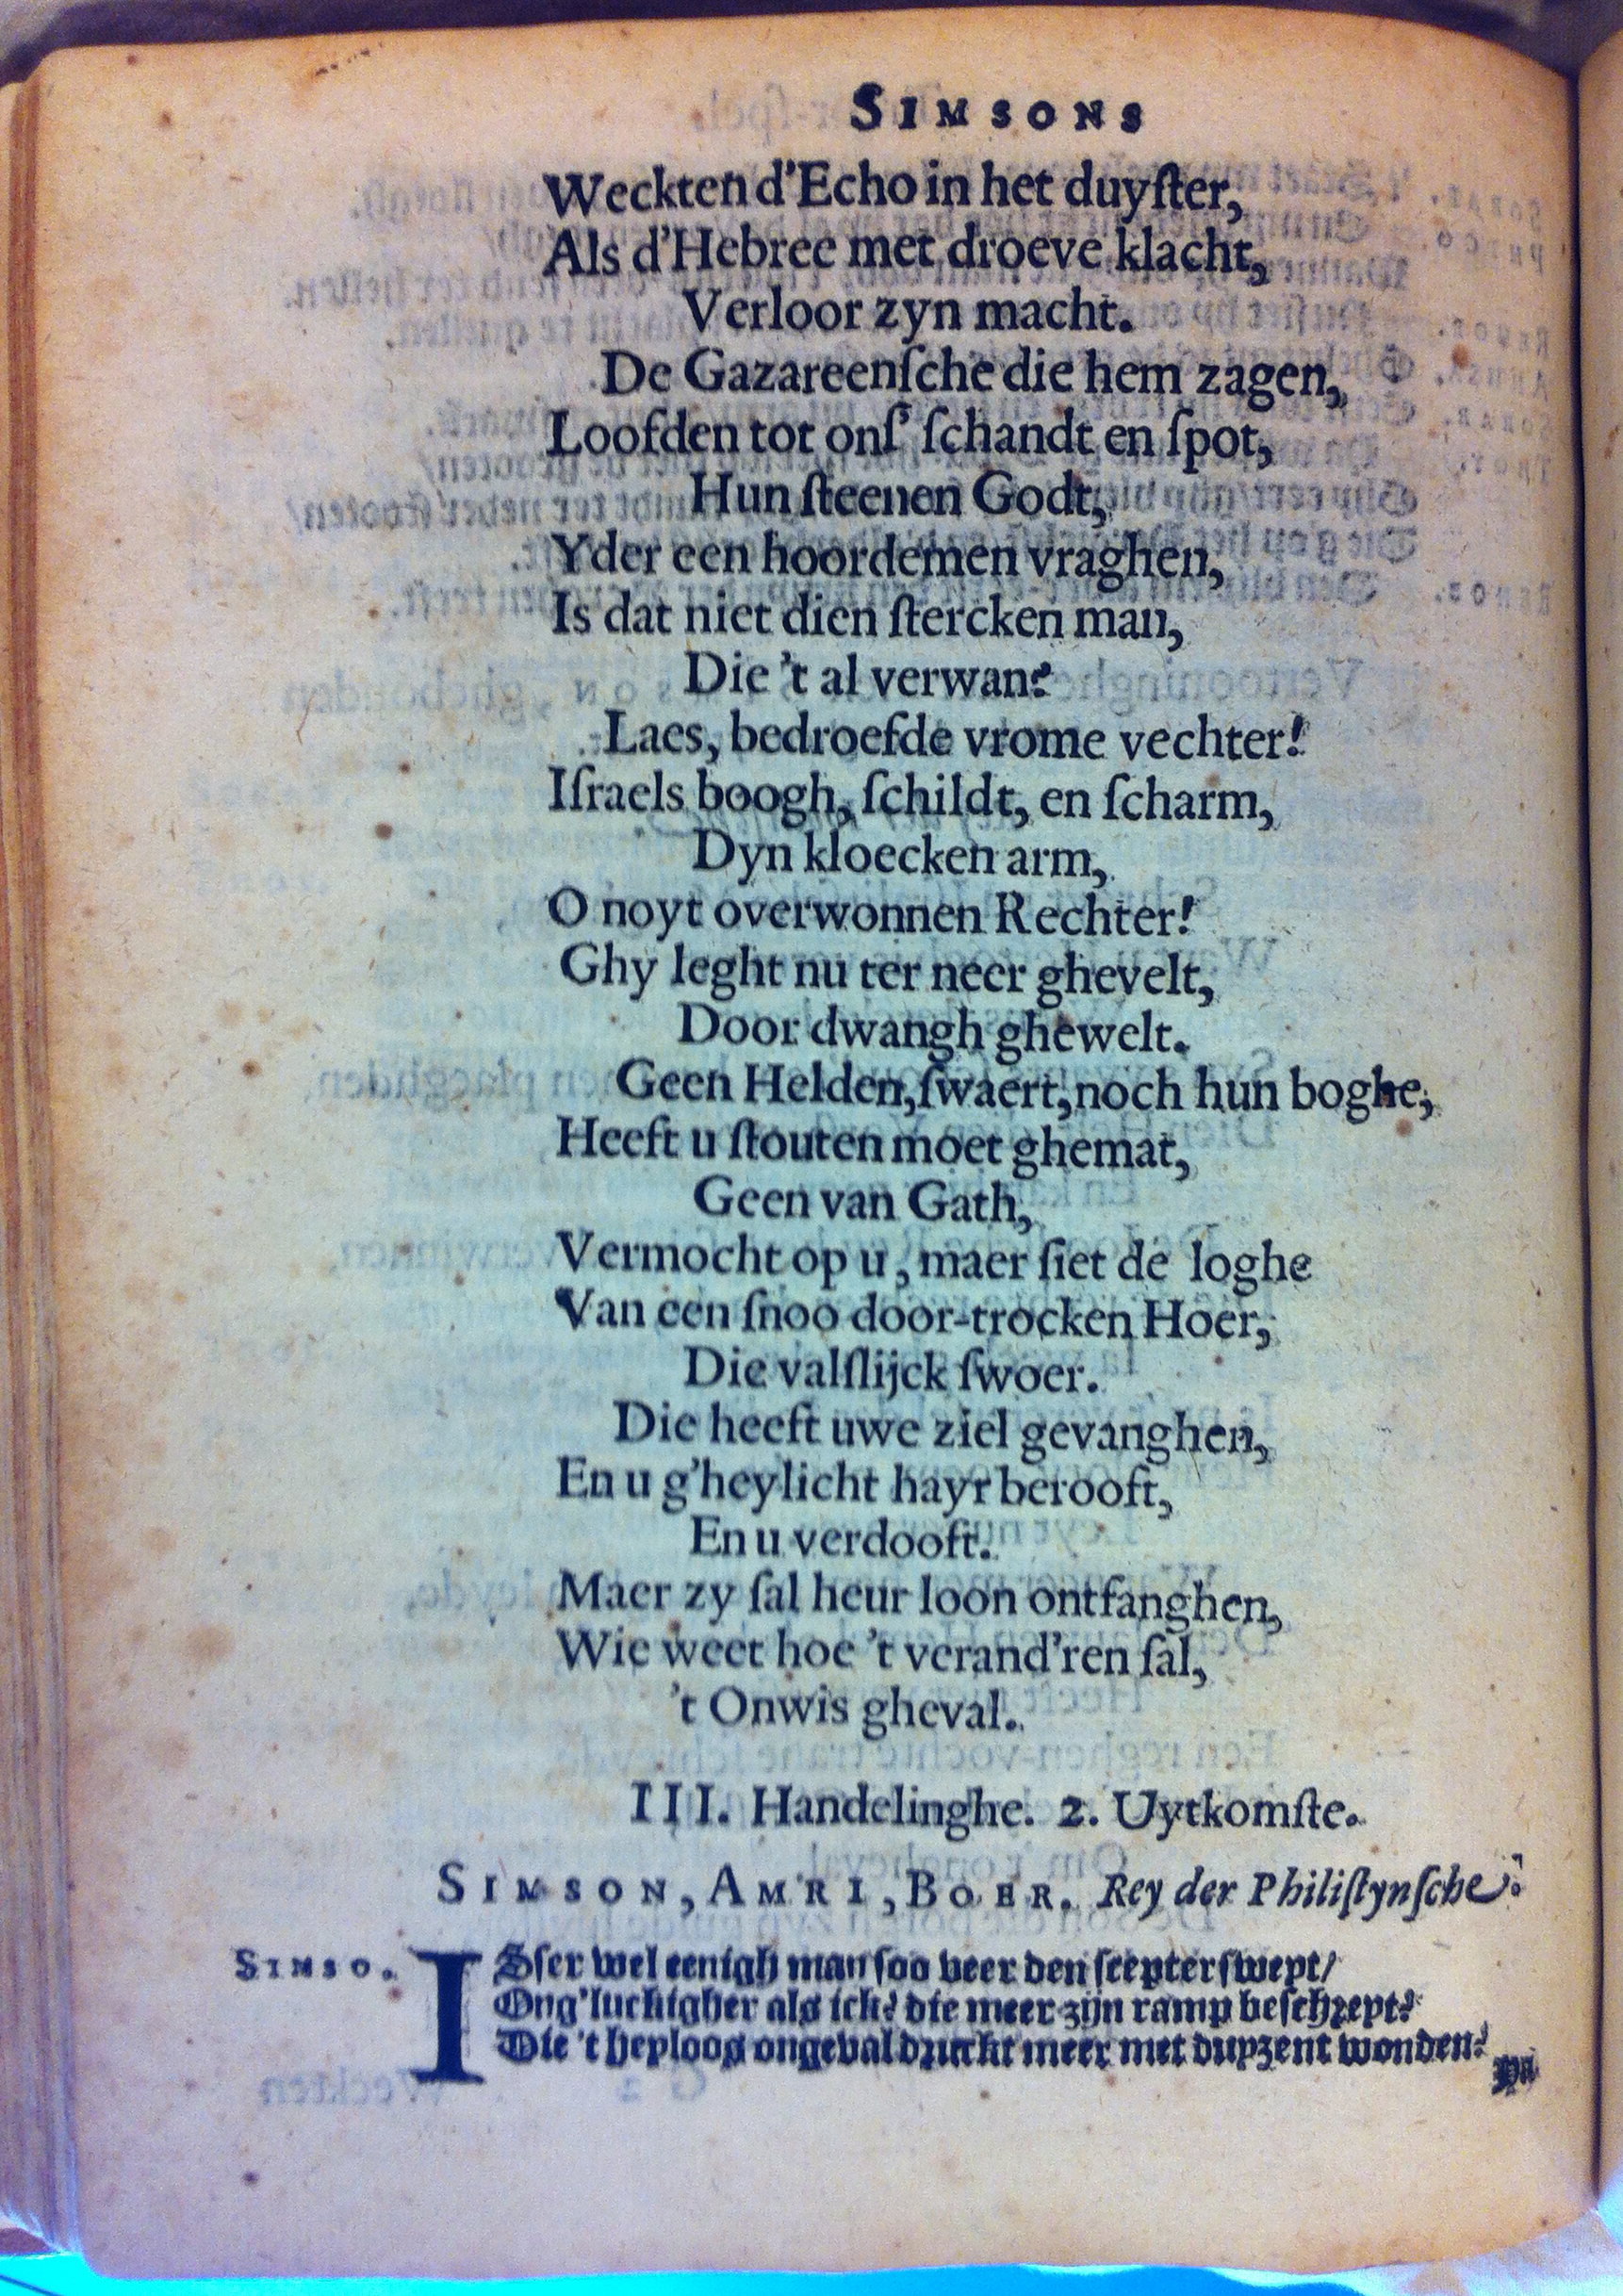 SIMSONS
Weckten d'Echo in het duyſter,
Als d'Hebree met droeve klacht,
Verloor zyn macht.
De Gazareenſche die hem zagen,
Loofden tot onſ' ſchandt en ſpot,
Hun ſteenen Godt,
Yder een hoordemen vraghen,
Is dat niet dien ſtercken man,
Die 't al verwan?
Laes, bedroefde vrome vechter!
Iſraels boogh, ſchildt, en ſcharm,
Dyn kloecken arm,
O noyt overwonnen Rechter!
Ghy leght nu ter neer ghevelt,
Door dwangh ghewelt.
Geen Helden, ſwaert, noch hun boghe,
Heeft u ſtouten moet ghemat,
Geen van Gath,
Vermocht op u, maer ſiet de loghe
Van een ſnoo door-trocken Hoer,
Die valſlijck ſwoer.
Die heeft uwe ziel gevanghen,
En u g'heylicht hayr berooft,
En u verdooft.
Maer zy ſal heur loon ontfanghen,
Wie weet hoe 't verand'ren ſal,
't Onwis gheval.
III. Handelinghe. 2. Uytkomſte.
SIMSON, AMRI, BOER. Rey der Philiſtynſche.
SIMSO. ISſer wel eenigh man ſoo veer den ſcepter ſwept/
Ong'luckigher als ick? die meer zijn ramp beſchrept?
Die 't heyloos ongeval druckt meer met duyzent wonden?